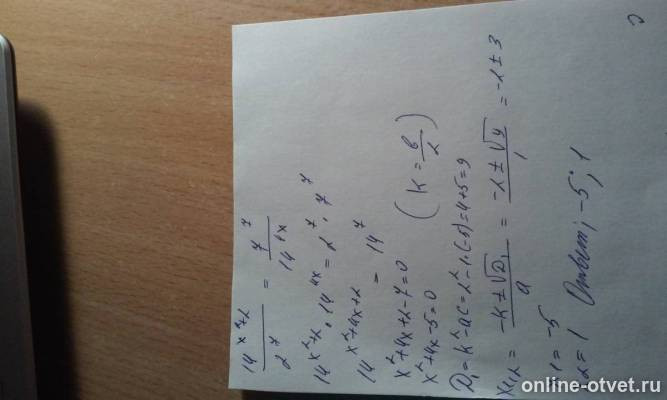 14^(x²+2) / 2^7 = 7^7 / 14^(4x)
14^(x²+2) · 14^(4x) = 2^7 · 7^7
14^(x²+4x+2) = 14^7
x²+4x+2-7=0
x²+4x-5=0 (k = b/2)
D₁=k²-ac=2²-1·(-5)=4+5=9
x₁,₂ = (-k±√D₁)/a = (-2±√9)/1 = -2±3
1 = -5
2 = 1 Ответ: -5; 1
online-otvet.ru